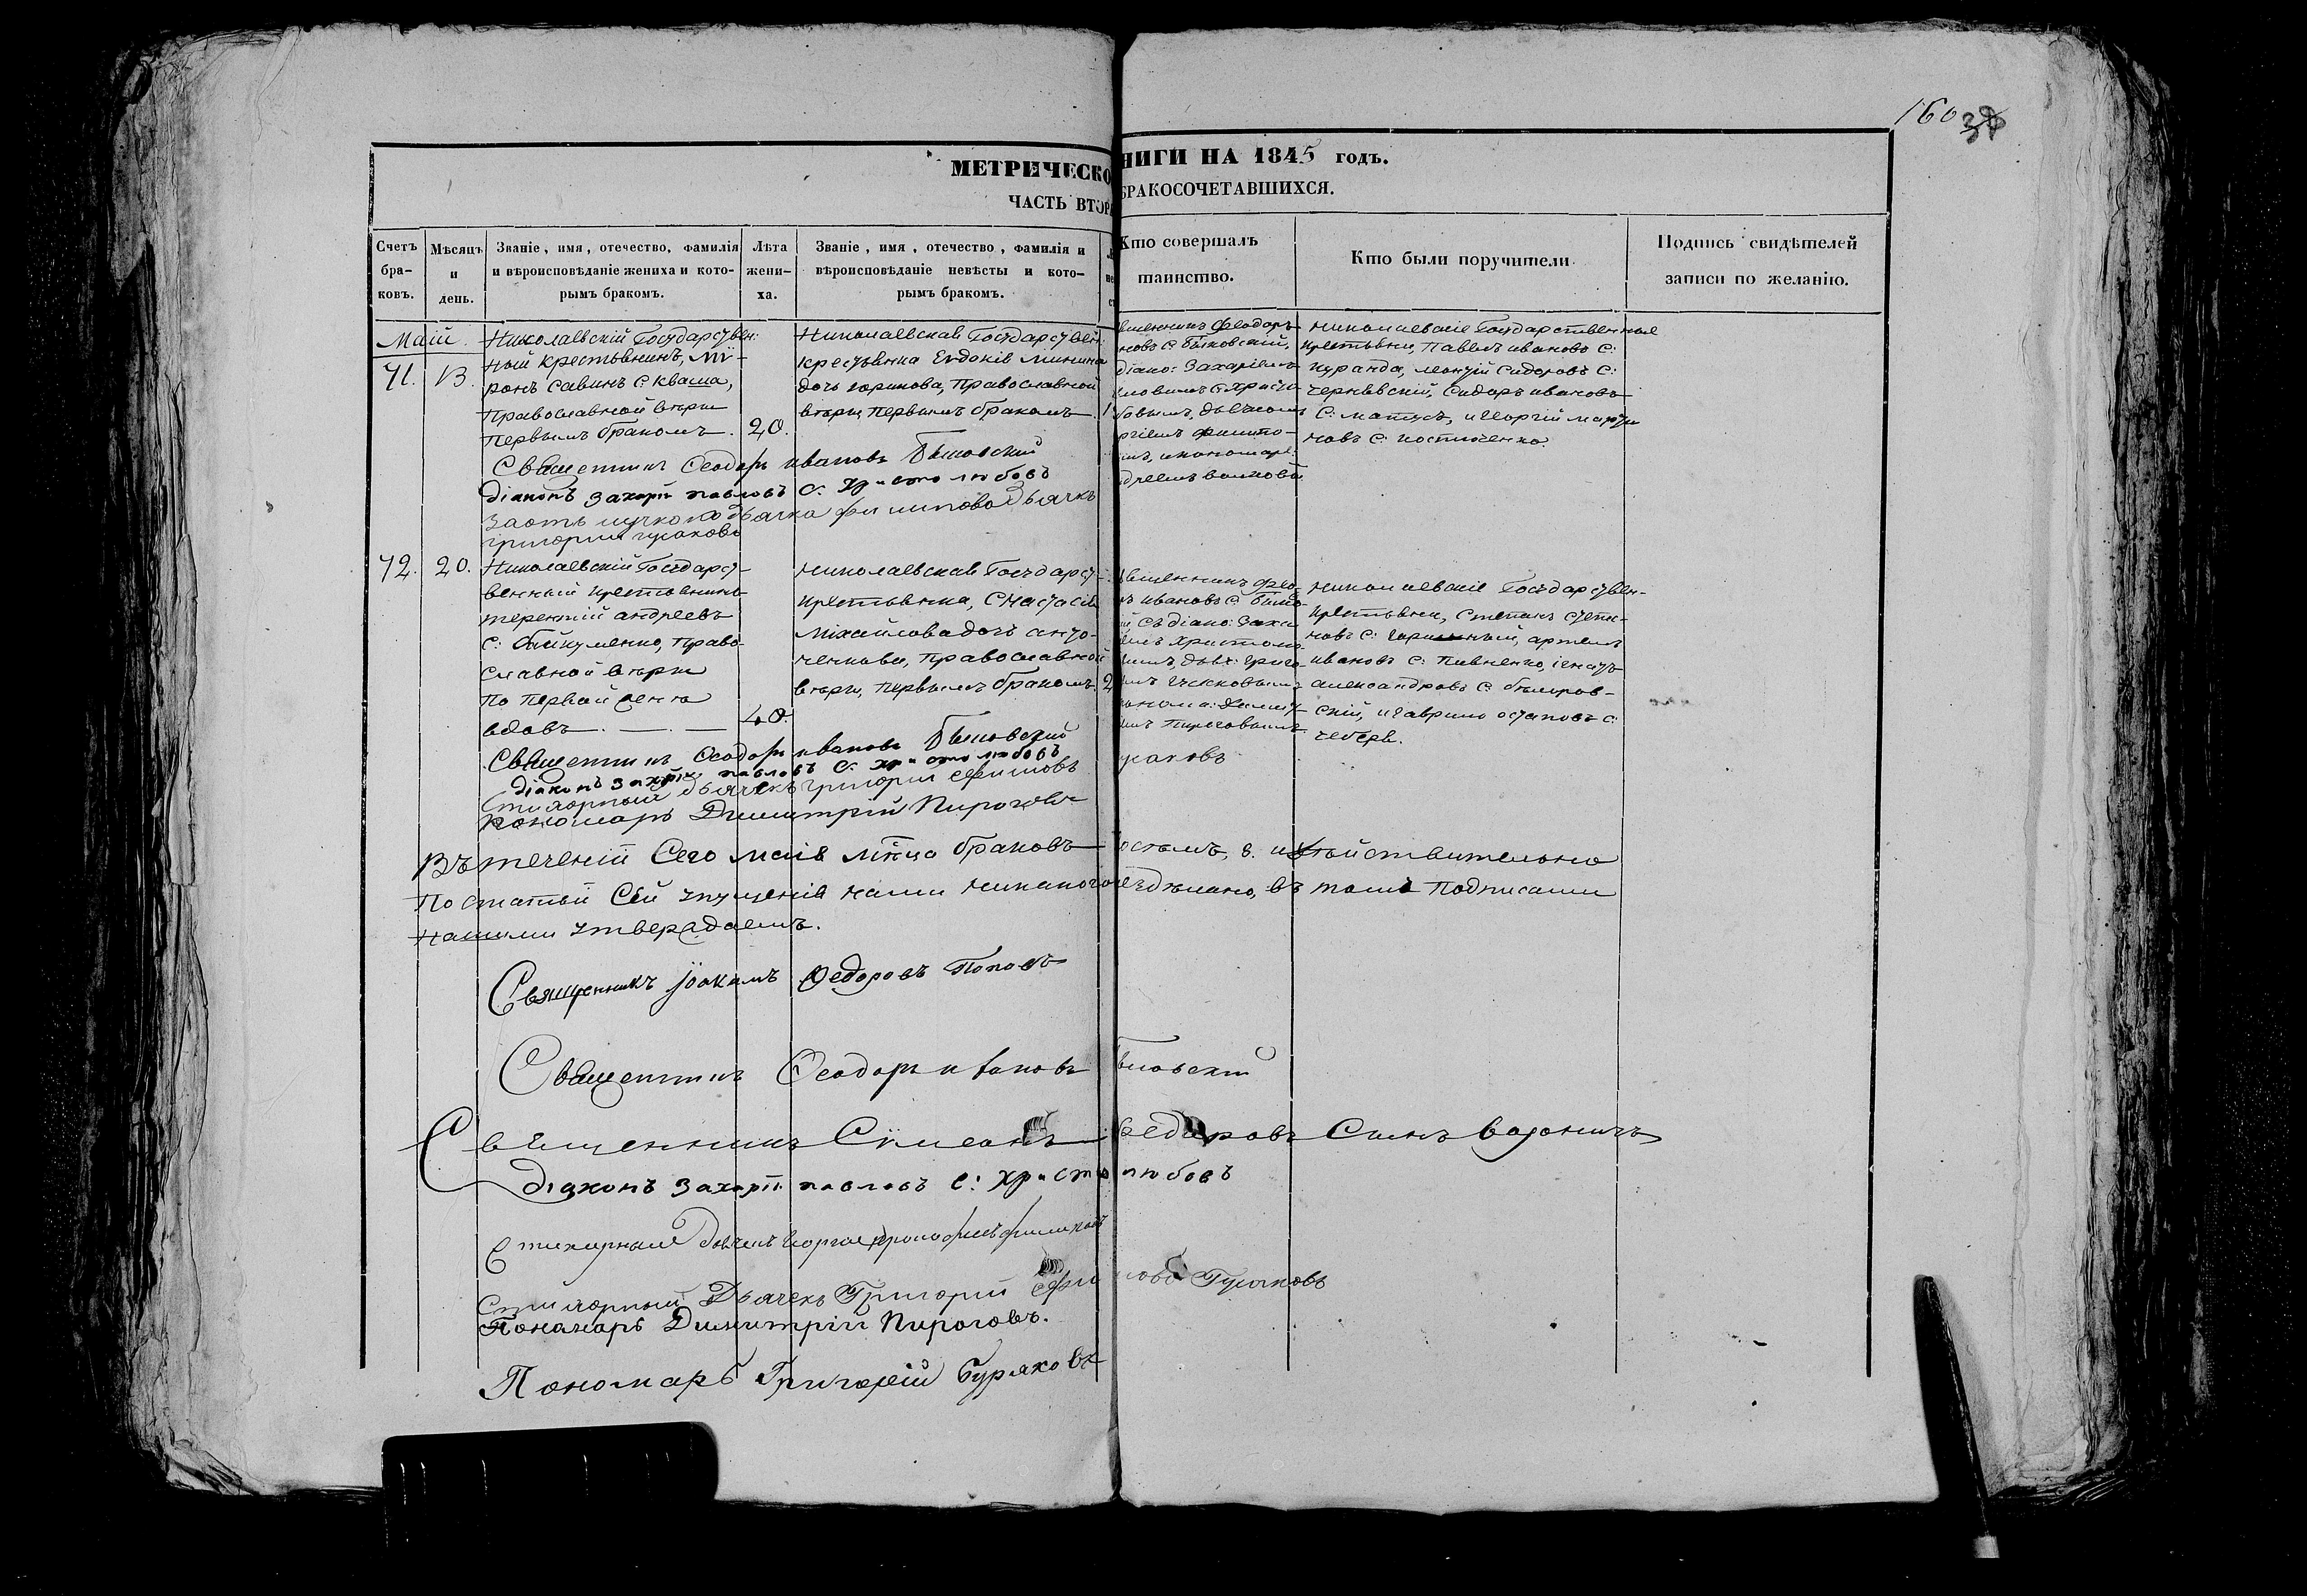 160 38
МЕТРИЧЕСКО НИГИ НА 1845 годъ.
ЧАСТЬ ВТОРА БРАКОСОЧЕТАВШИХСЯ.
Счетъ бра- ковъ.
Мѣсяцъ и день.
Званіе, имя, отечество, фамилія и вѣроисповѣданіе жениха и кото- рымъ бракомъ.
Лѣта жени- ха.
Званіе, имя, отечество, фамилія и вѣроисповѣданіе невѣсты и кото- рымъ бракомъ.
Кто совершалъ таинство.
Кто были поручители
Подпись свидѣтелей записи по желанію.
Маій
71. 13.
Николаевскій Государствен:
ный крестьянинъ, Мѵ-
ронъ Савинъ С. Кваша,
Православной вѣры
первымъ бракомъ.
20.
Николаевская Государствен:
крестьянка Евдокія Минина
дочь Юринова, Православной
вѣры, первымъ бракомъ.
щенникъ Феодоръ
новъ С. Быковскій,
діако: Захаріемъ
вловымъ С. Христо
бовымъ, дьячкомъ
ргіемъ Филипо-
имъ, и пономаре:
дреемъ Волковы
Николаевскіе Государственные
крестьяне, Павелъ Ивановъ С:
Куранда, Леонтій Сидоровъ С:
Чернявскій, Сидоръ Ивановъ
С: Матусъ, и Георгій Марты
новъ С: Костюченко.
Священникъ Феодоръ Ивановъ Быковский
Діаконъ Захарій Павловъ С. Христолюбовъ
дьячка Филипова Дьячкъ
Григорий Гусаковъ
72. 20.
Николаевскій Государст-
венный крестьянинъ
Терентій Андреевъ
С: Якуменко, Право-
славной вѣры
по первой женѣ
вдовъ.
40.
Николаевская Государст-
крестьянка, Анастасія
Михайлова дочь Анто-
ненкова, Православной
вѣры, первымъ бракомъ. 2
вященникъ Фео-
ръ Ивановъ С. Быко-
ій съ діако: Заха
емъ Христолю-
ымъ, дьяч: Григо-
емъ Гусаковымъ
ономар: Димит-
емъ Пироговымъ
Николаевскіе Государствен-
крестьяне, Степанъ Степа-
новъ С: Артемъ
Ивановъ С. Пивненко, Игнатъ
Александровъ С.
скій, и Гаврило Остаповъ С:
Чеберя.
Священникъ Феодоръ Ивановъ Быковский
діаконъ Захарій Павловъ С. Христолюбовъ
Стихарный дьячекъ Григорий Ефимовъ усаковъ
Пономарь Димитрій Пироговъ
Въ теченіи Сего Маія мѣсца браковъ остемъ, 8. и дѣйствительно
По статьи Сей упущенія нами никакого сдѣлано, въ томъ подписами
Нашими утверждаемъ.
Священникъ Іоакимъ Федоровъ Поповъ
Священникъ Феодоръ Ивановъ Быковский
Священникъ Сѵмеонъ Федоровъ Сынъ
Діаконъ Захарій Павловъ С: Христолюбовъ
Стихарный Дьячекъ Георгий Прокофиевъ Филиповъ
Стихарный Дьячекъ Григорий Ефимовъ Гусаковъ
Пономарь Димитрій Пироговъ.
Пономарь Григорій Буряковъ